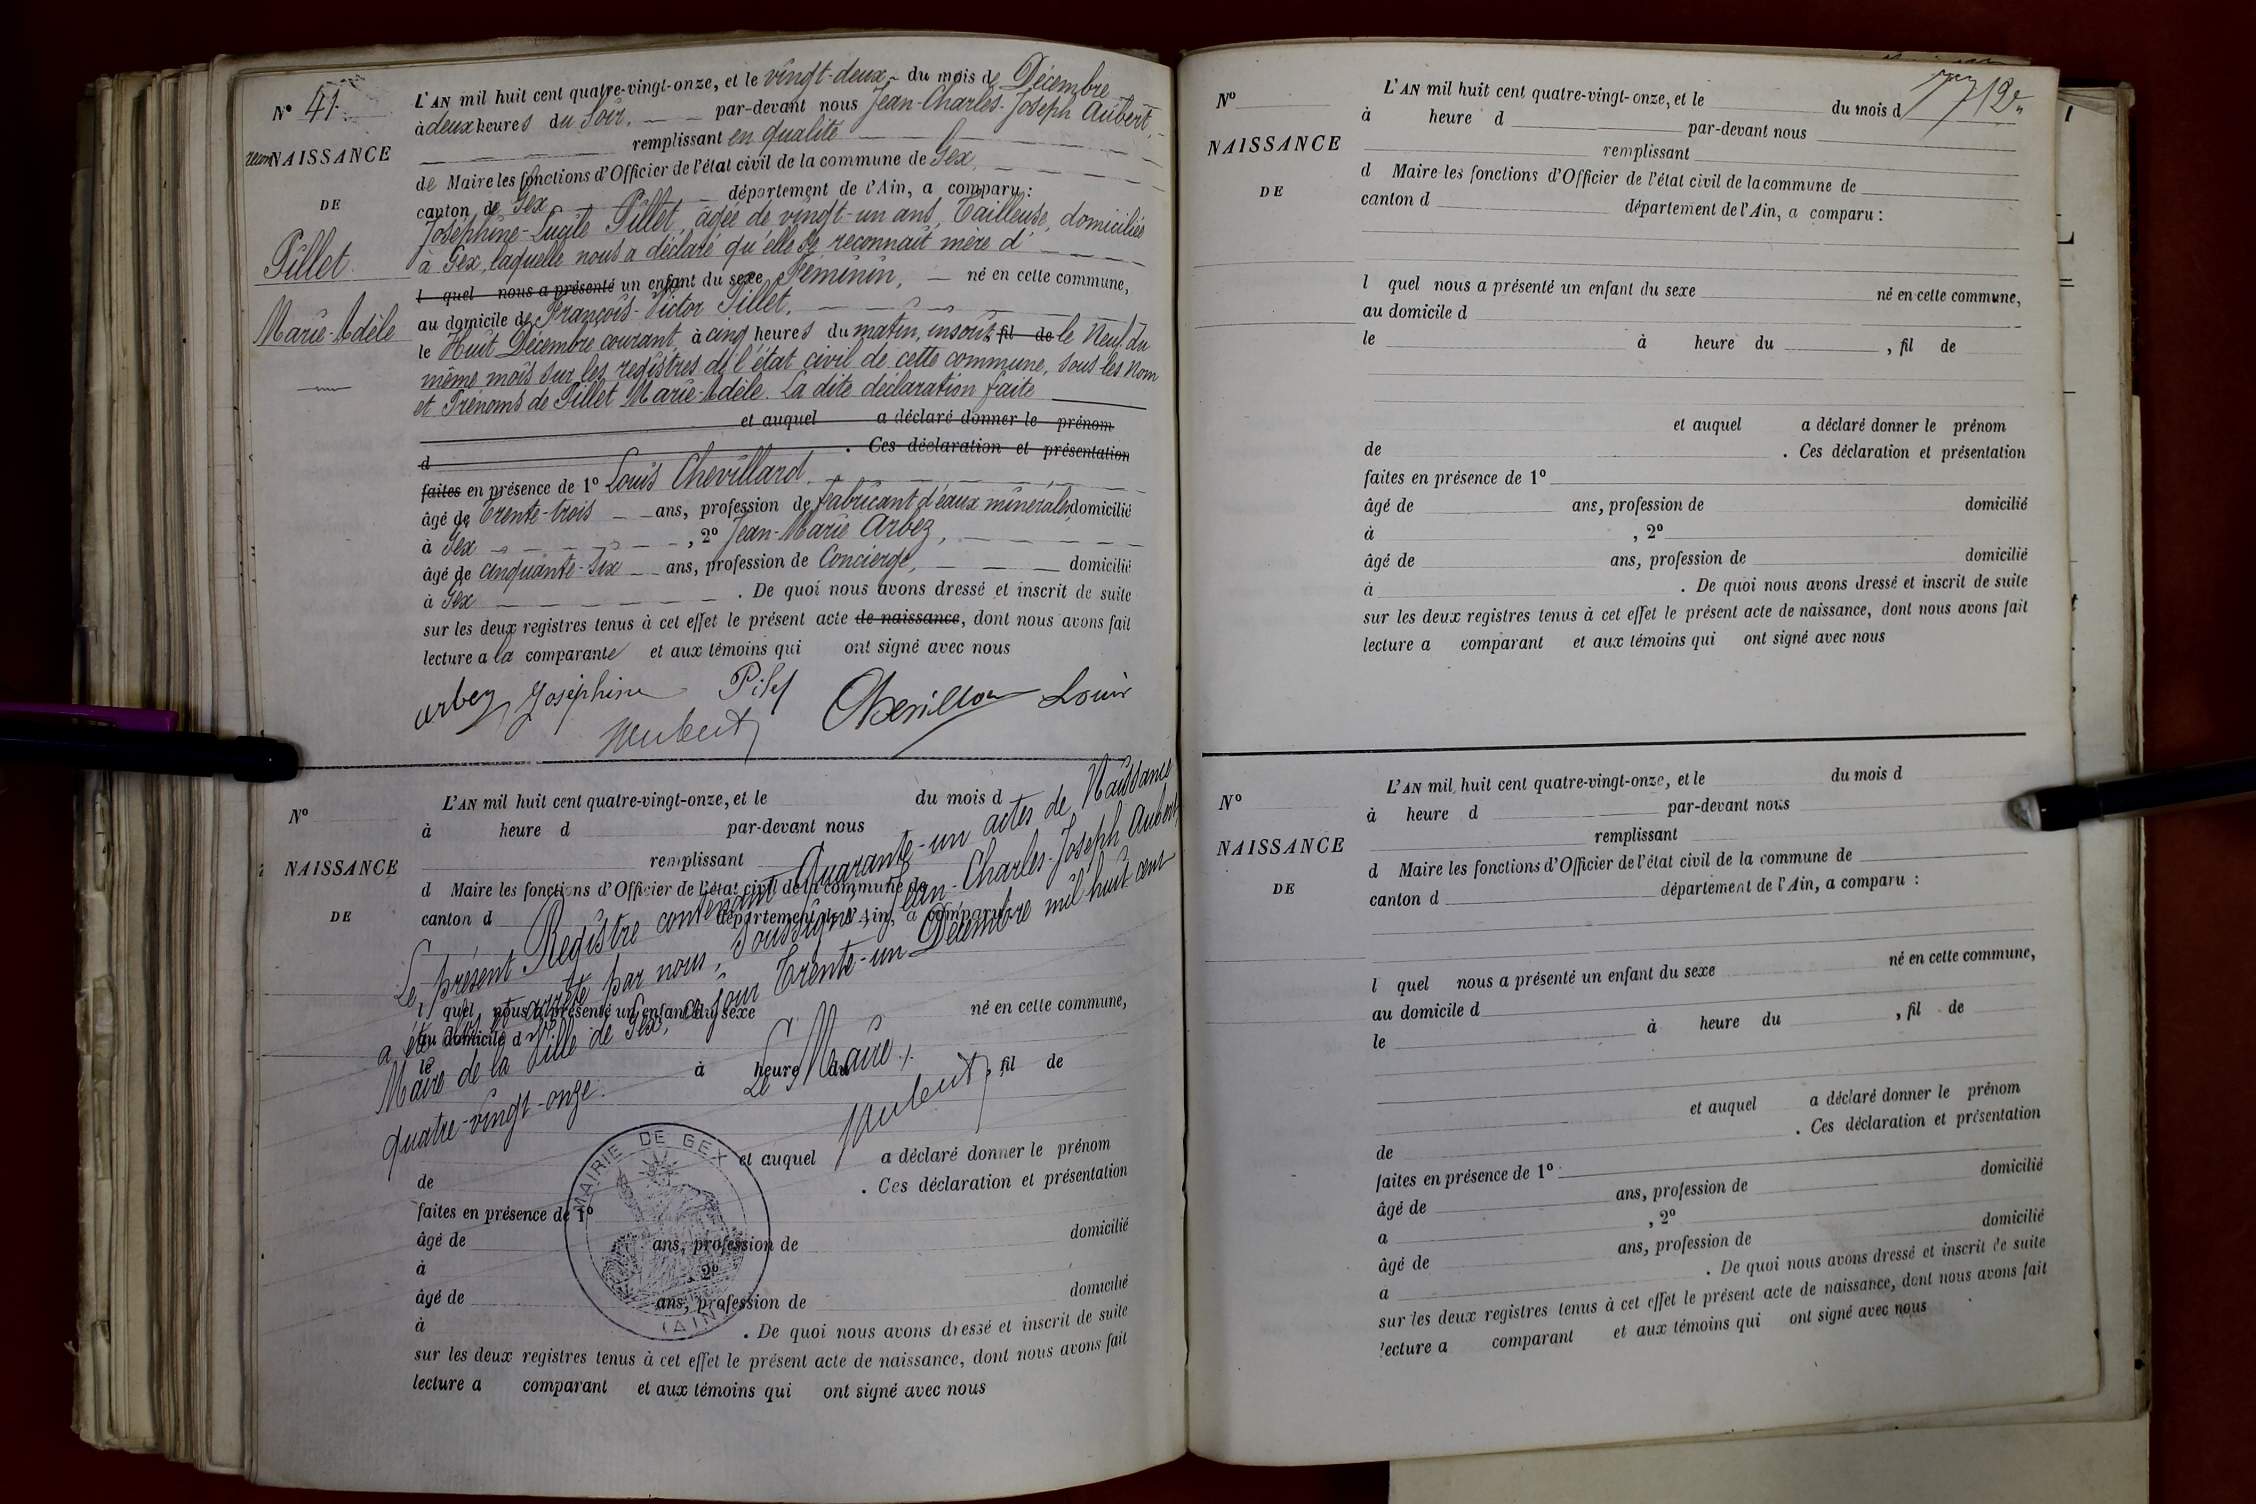 N° 41.
NAISSANCE
DE
Pillet
Marie-Adèle
L'AN mil huit cent quatre-vingt-onze, et le vingt-deux du mois de Décembre
à deux heures du Soir, par-devant nous Jean-Charles-Joseph Aubert,
remplissant en qualité
de Maire les fonctions d'Officier de l'état civil de la commune de Gex,
canton de Gex département de l'Ain, a comparu :
Joséphine-Lucile Pillet, âgée de vingt-un ans, Tailleuse, domiciliée
à Gex, laquelle nous a déclaré qu'elle se reconnaît mère d'
l quel nous a présenté un enfant du sexe Féminin, né en cette commune,
au domicile de François-Victor Pillet,
le Huit Décembre courant, à cinq heures du matin, inscrit fil de le Neuf du
même mois sur les registres de l'état civil de cette commune, sous les Nom
et Prénoms de Pillet Marie-Adèle. La dite déclaration faite
et auquel a déclaré donner le prénom
d . Ces déclaration et présentation
faites en présence de 1° Louis Chevillard,
âgé de trente-trois ans, profession de Fabricant d'eaux minérales, domicilié
à Gex , 2° Jean-Marie Arbez,
âgé de cinquante-six ans, profession de Concierge, domicilié
à Gex . De quoi nous avons dressé et inscrit de suite
sur les deux registres tenus à cet effet le présent acte de naissance, dont nous avons fait
lecture a la comparante et aux témoins qui ont signé avec nous
arbez Joséphine Pilet Chevillard Louis
Aubert
N°
NAISSANCE
DE
L'AN mil huit cent quatre-vingt-onze, et le du mois d
à heure d par-devant nous
remplissant
d Maire les fonctions d'Officier de l'état civil de la commune de
canton d département de l'Ain, a comparu :
l quel nous a présenté un enfant du sexe né en cette commune,
au domicile d
le à heure du , fil de
et auquel a déclaré donner le prénom
de . Ces déclaration et présentation
faites en présence de 1°
âgé de ans, profession de domicilié
à , 2°
âgé de ans, profession de domicilié
à . De quoi nous avons dressé et inscrit de suite
sur les deux registres tenus à cet effet le présent acte de naissance, dont nous avons fait
lecture a comparant et aux témoins qui ont signé avec nous
Le présent Registre contenant Quarante-un actes de Naissance
a été clos et arrêté par nous, soussigné, Jean-Charles-Joseph Aubert,
Maire de la Ville de Gex, ce jour Trente-un Décembre mil huit cent
quatre-vingt-onze.
Le Maire,
Aubert
MAIRIE DE GEX
(AIN)
N°
NAISSANCE
DE
L'AN mil huit cent quatre-vingt-onze, et le du mois d
à heure d par-devant nous
remplissant
d Maire les fonctions d'Officier de l'état civil de la commune de
canton d département de l'Ain, a comparu :
l quel nous a présenté un enfant du sexe né en cette commune,
au domicile d
le à heure du , fil de
et auquel a déclaré donner le prénom
de . Ces déclaration et présentation
faites en présence de 1°
âgé de ans, profession de domicilié
à , 2°
âgé de ans, profession de domicilié
à . De quoi nous avons dressé et inscrit de suite
sur les deux registres tenus à cet effet le présent acte de naissance, dont nous avons fait
lecture a comparant et aux témoins qui ont signé avec nous
N°
NAISSANCE
DE
L'AN mil huit cent quatre-vingt-onze, et le du mois d
à heure d par-devant nous
remplissant
d Maire les fonctions d'Officier de l'état civil de la commune de
canton d département de l'Ain, a comparu :
l quel nous a présenté un enfant du sexe né en cette commune,
au domicile d
le à heure du , fil de
et auquel a déclaré donner le prénom
de . Ces déclaration et présentation
faites en présence de 1°
âgé de ans, profession de domicilié
a , 2°
âgé de ans, profession de domicilié
a . De quoi nous avons dressé et inscrit de suite
sur les deux registres tenus à cet effet le présent acte de naissance, dont nous avons fait
lecture a comparant et aux témoins qui ont signé avec nous